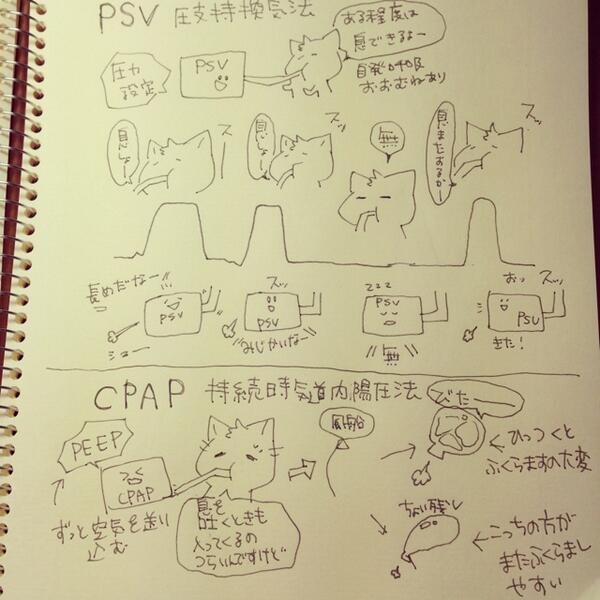 PSV 圧支持換気法
圧力
設定
PSV
ある程度は
息できるよー
自発呼吸
おおむねあり
息しよー
スー
息しよー
スッ
無
息またするかー
スッ
長めだなー
PSV
シュー
スッ
PSV
みじかいなー
zzz
PSV
無
おっ スッ
PSV
きた!
CPAP 持続時気道内陽圧法
PEEP
CPAP
ずっと空気を送り
込む
息を
吐くときも
入ってくるの
つらいんですけど
風船
びたー
ひっつくと
ふくらますの大変
ちょい残し
こっちの方が
またふくらまし
やすい